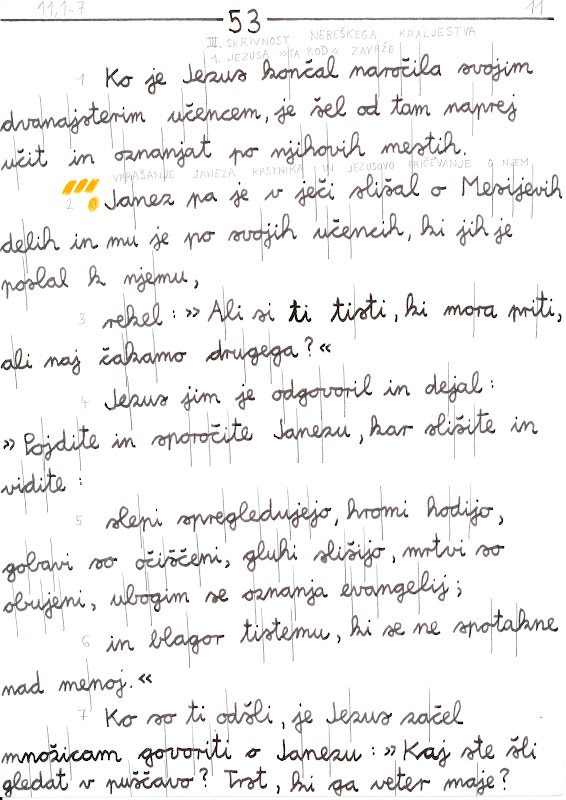 11,1-7 53 11
III. SKRIVNOST NEBEŠKEGA KRALJESTVA
1. JEZUSA »TA ROD« ZAVRŽE
1 Ko je Jezus končal naročila svojim
dvanajsterim učencem, je šel od tam naprej
učit in oznanjat po njihovih mestih.
VPRAŠANJE JANEZA KRSTNIKA IN JEZUSOVO PRIČEVANJE O NJEM
2 Janez pa je v ječi slišal o Mesijevih
delih in mu je po svojih učencih, ki jih je
poslal k njemu,
3 rekel: »Ali si ti tisti, ki mora priti,
ali naj čakamo drugega?«
4 Jezus jim je odgovoril in dejal:
»Pojdite in sporočite Janezu, kar slišite in
vidite:
5 slepi spregledujejo, hromi hodijo,
gobavi so očiščeni, gluhi slišijo, mrtvi so
obujeni, ubogim se oznanja evangelij;
6 in blagor tistemu, ki se ne spotakne
nad menoj.«
7 Ko so ti odšli, je Jezus začel
množicam govoriti o Janezu: »Kaj ste šli
gledat v puščavo? Trst, ki ga veter maje?